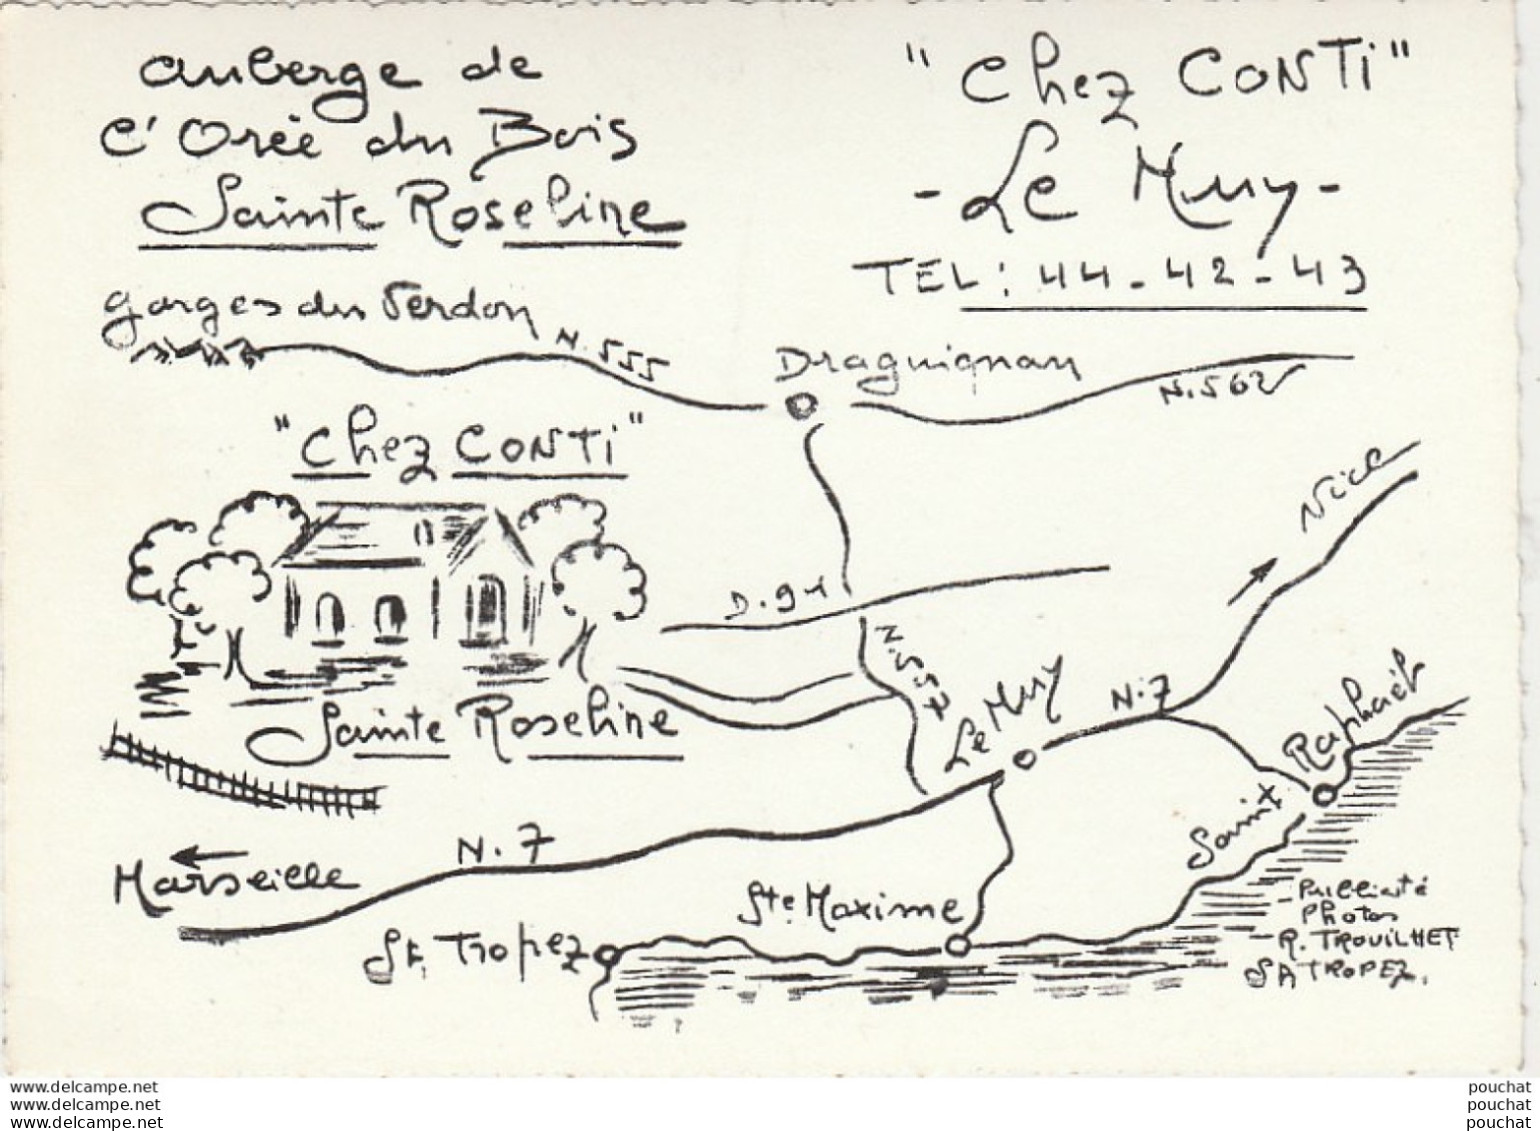 Auberge de
l'Orée du Bois
Sainte Roseline
"Chez CONTI"
- Le Muy -
TEL: 44-42-43
Gorges du Verdon
N.555
Draguignan
N.562
"Chez CONTI"
Nice
D.91
N.557
Le Muy
N.7
Sainte Roseline
Saint Raphaël
N.7
Marseille
Ste Maxime
St. Tropez
- Publicité
Photos
- R. TROUILHET
St TROPEZ.
www.delcampe.net
www.delcampe.net
www.delcampe.net
pouchat
pouchat
pouchat